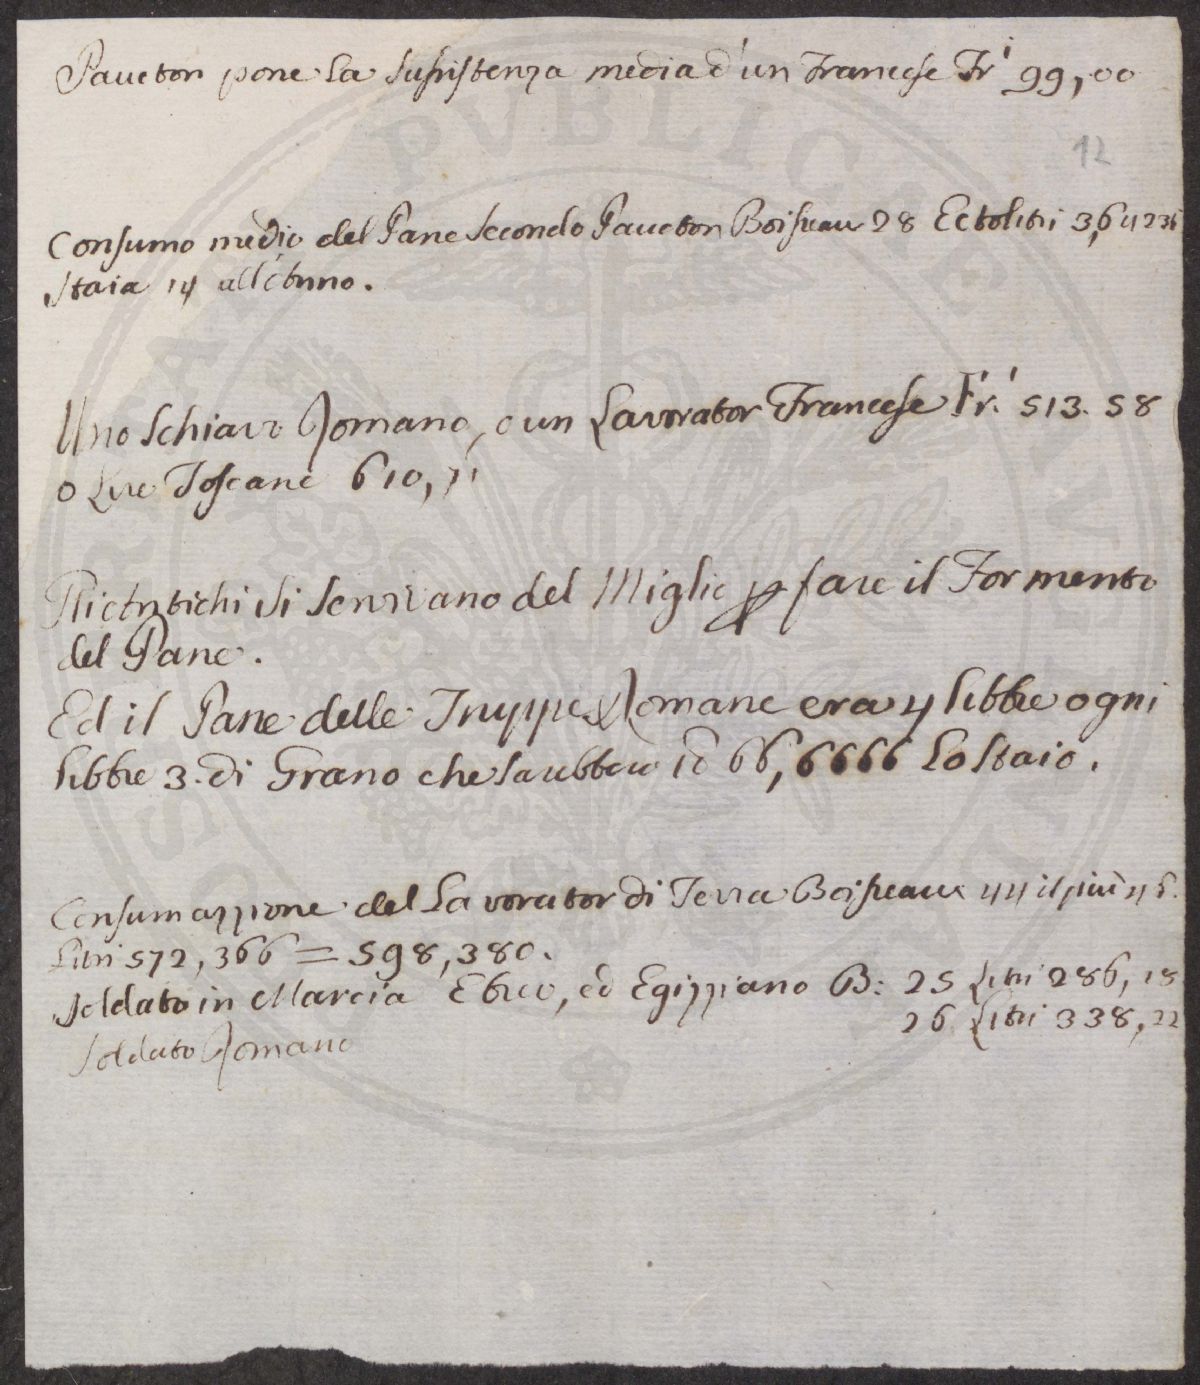 Paucton pone la sussistenza media d'un Francese Fr. 99,00
12
Consumo medio del Pane secondo Paucton Boisseau 28 Ectolitri 3,64236
Staia 14 all'etuno.
Uno Schiavo Romano, o un Lavorator Francese Fr. 513.58
o Lire Toscane 610,11
Gli antichi si servivano del Miglio per fare il Formento
del Pane.
Ed il Pane delle Truppe Romane era 4 libbre ogni
libbre 3. di Grano che sarebbero ld 66,6666 Lo Staio.
Consumazzione del Lavorator di Terra Boisseaux 44 il più 45.
Litri 572,366 = 598,380.
Soldato in Marcia Ebreo, ed Egizziano B: 25 Litri 286,18
26 Litri 338,22
Soldato Romano